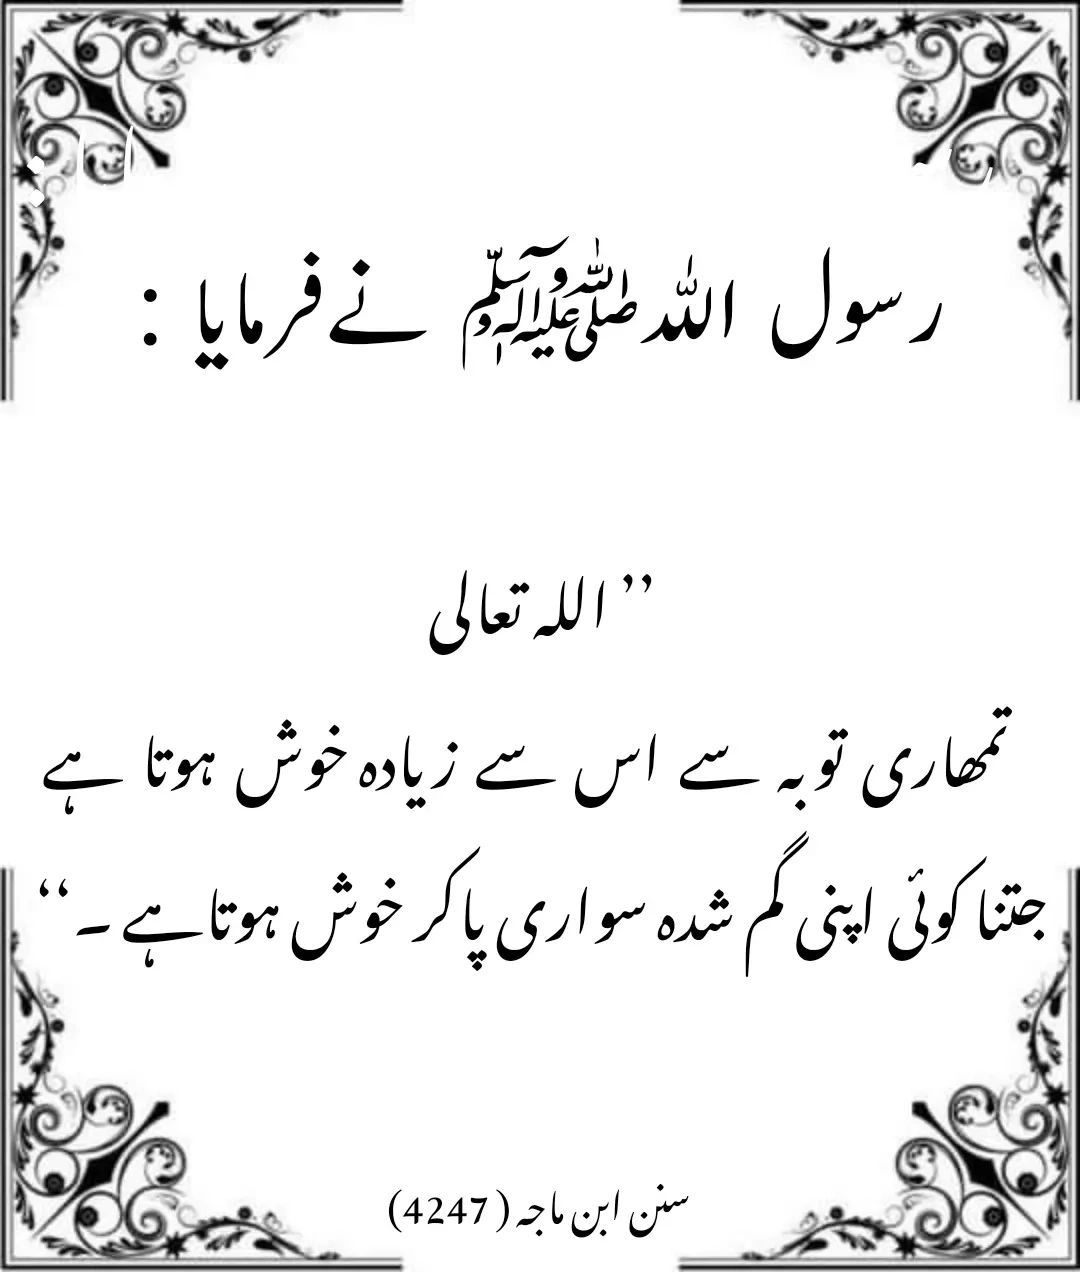 رسول اللهﷺ نےفرمایا :
’’اللہ تعالی
تمھاری توبہ سے اس سے زیادہ خوش ہوتا ہے
جتنا کوئی اپنی گم شدہ سواری پا کر خوش ہوتاہے ۔‘‘
سنن ابن ماجہ ( 4247)